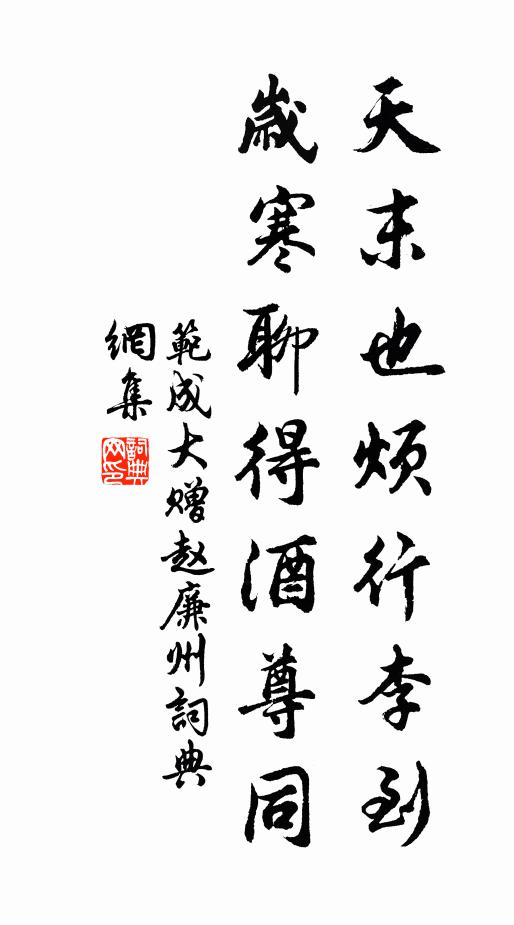 天末也烦行李到
歲寒聊得酒尊同
範成大贈赵廉州詞典
網集
詞典
网印